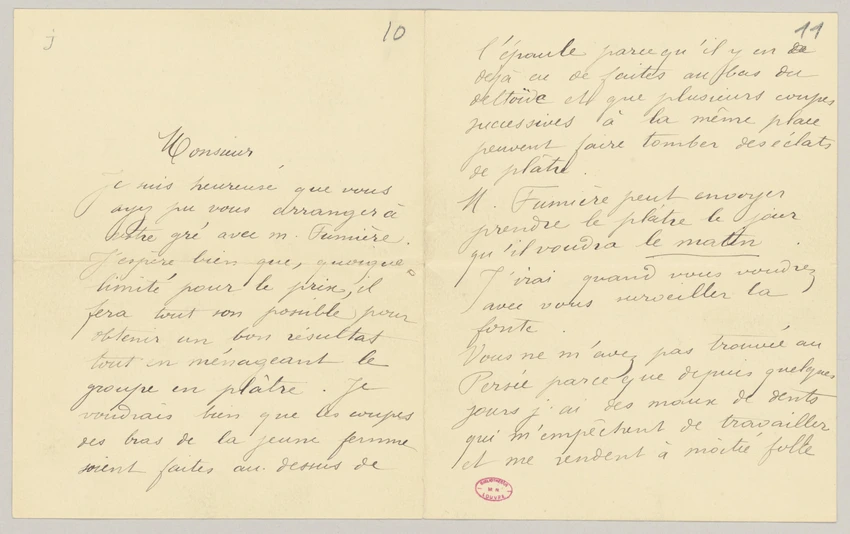 j
10
Monsieur
Je suis heureuse que vous
ayez pu vous arranger à
votre gré avec m. Fumière.
J'espère bien que, quoique
limité pour le prix, il
fera tout son possible pour
obtenir un bon résultat
tout en ménageant le
groupe en plâtre. Je
voudrais bien que les coupes
des bras de la jeune femme
soient faites au-dessus de
11
l'épaule parcequ'il y en a
déjà eu de faites au bas du
deltoïde et que plusieurs coupes
successives à la même place
peuvent faire tomber des éclats
de plâtre.
M. Fumière peut envoyer
prendre le plâtre le jour
qu'il voudra le matin.
J'irai quand vous voudrez
avec vous surveiller la
fonte.
Vous ne m'avez pas trouvée au
Persée parce que depuis quelques
jours j'ai des maux de dents
qui m'empêchent de travailler
et me rendent à moitié folle
BIBLIOTHÈQUE
LOUVRE